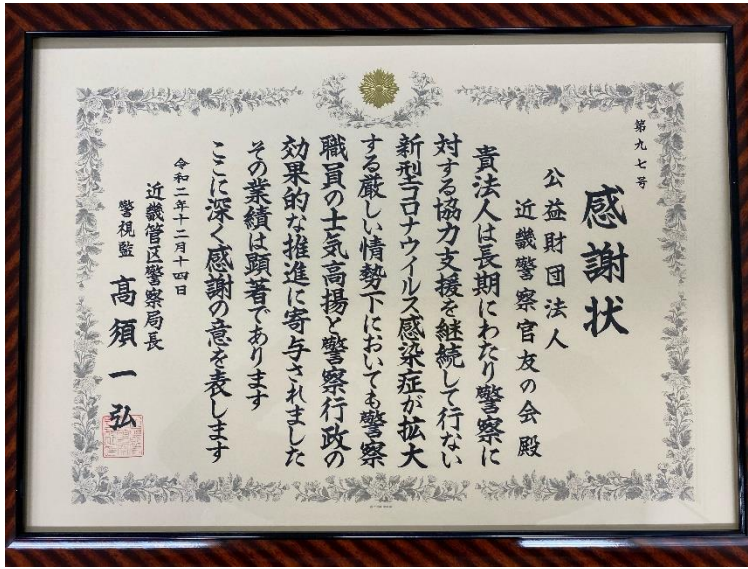 第九七号
感謝状
公益財団法人
近畿警察官友の会殿
貴法人は長期にわたり警察に
対する協力支援を継続して行ない
新型コロナウイルス感染症が拡大
する厳しい情勢下においても警察
職員の士気高揚と警察行政の
効果的な推進に寄与されました
その業績は顕著であります
ここに深く感謝の意を表します
令和二年十二月十四日
近畿管区警察局長
警視監 髙須一弘